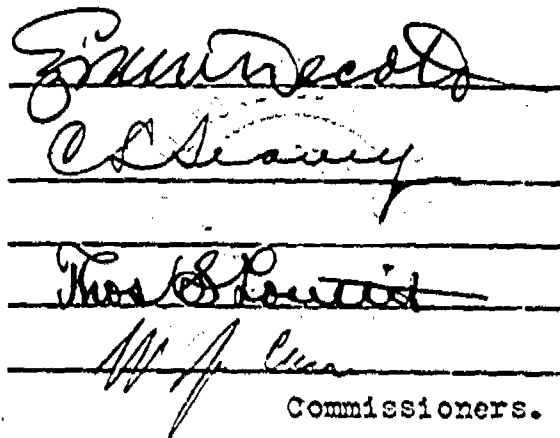 C L Seavey
Thos S Louttit
W J Carr
Commissioners.